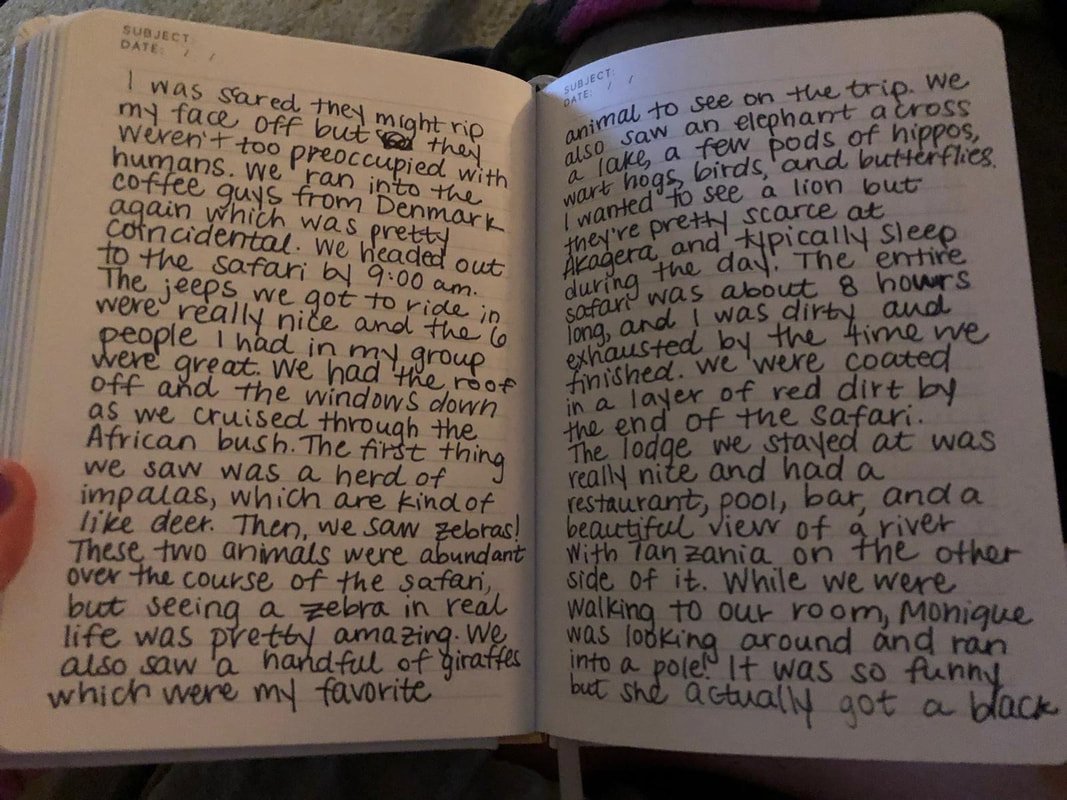 SUBJECT:
DATE: / /
I was sared they might rip
my face off but they
weren't too preoccupied with
humans. We ran into the
coffee guys from Denmark
again which was pretty
coincidental. We headed out
to the safari by 9:00 am.
The jeeps we got to ride in
were really nice and the 6
people I had in my group
were great. We had the roof
off and the windows down
as we cruised through the
African bush. The first thing
we saw was a herd of
impalas, which are kind of
like deer. Then, we saw zebras!
These two animals were abundant
over the course of the safari,
but seeing a zebra in real
life was pretty amazing. We
also saw a handful of giraffes
which were my favorite
SUBJECT:
DATE: / /
animal to see on the trip. We
also saw an elephant across
a lake, a few pods of hippos,
wart hogs, birds, and butterflies.
I wanted to see a lion but
they're pretty scarce at
Akagera and typically sleep
during the day. The entire
safari was about 8 hours
long, and I was dirty and
exhausted by the time we
finished. We were coated
in a layer of red dirt by
the end of the safari.
The lodge we stayed at was
really nice and had a
restaurant, pool, bar, and a
beautiful view of a river
with Tanzania on the other
side of it. While we were
walking to our room, Monique
was looking around and ran
into a pole! It was so funny
but she actually got a black